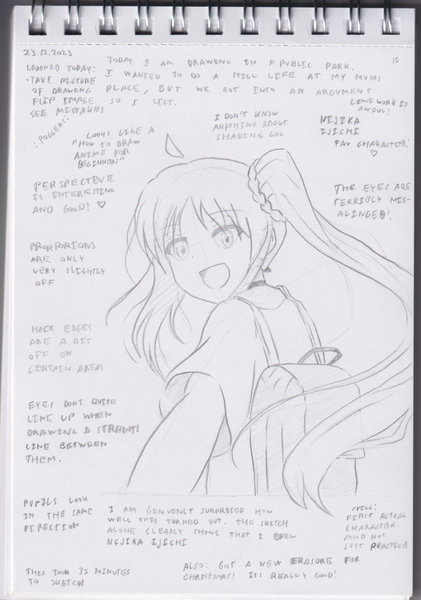 23.12.2023
15
TODAY I AM DRAWING IN A PUBLIC PARK.
I WANTED TO DO A STILL LIFE AT MY MUMS
PLACE, BUT WE GOT INTO AN ARGUMENT
SO I LEFT.
LEARNED TODAY:
·TAKE PICTURE
OF DRAWING
FLIP IMAGE
SEE MISTAKES
:POGGERS:
LOOKS LIKE A
"HOW TO DRAW
ANIME FOR
BEGINNERS"
I DON'T KNOW
ANYTHING ABOUT
SHADING LOL
LINEWORK IS
AWFUL!
NIJIKA
IJICHI
FAV CHARACTER!
♡
PERSPECTIVE
IS INTERESTING
AND GOOD! ♡
THE EYES ARE
TERRIBLY MIS-
ALINGED!
PROPORIONS
ARE ONLY
VERY SLIGHTLY
OFF
HAIR EDGES
ARE A BIT
OFF ON
CERTAIN AREAS
EYES DON'T QUITE
LINE UP WHEN
DRAWING A STRAIGHT
LINE BETWEEN
THEM.
PUPILS LOOK
IN THE SAME
DIRECTION
I AM GENUENLY SURPRISED HOW
WELL THIS TURNED OUT. THE SKETCH
ALONE CLEARLY SHOWS THAT I DREW
NIJIKA IJICHI
FIRST ACTUAL
CHARACTER
AND NOT
JUST PRACTICE
THIS TOOK 35 MINUTES
TO SKETCH
ALSO: GOT A NEW ERASURE FOR
CHRISTMAS! ITS REALLY GOOD!